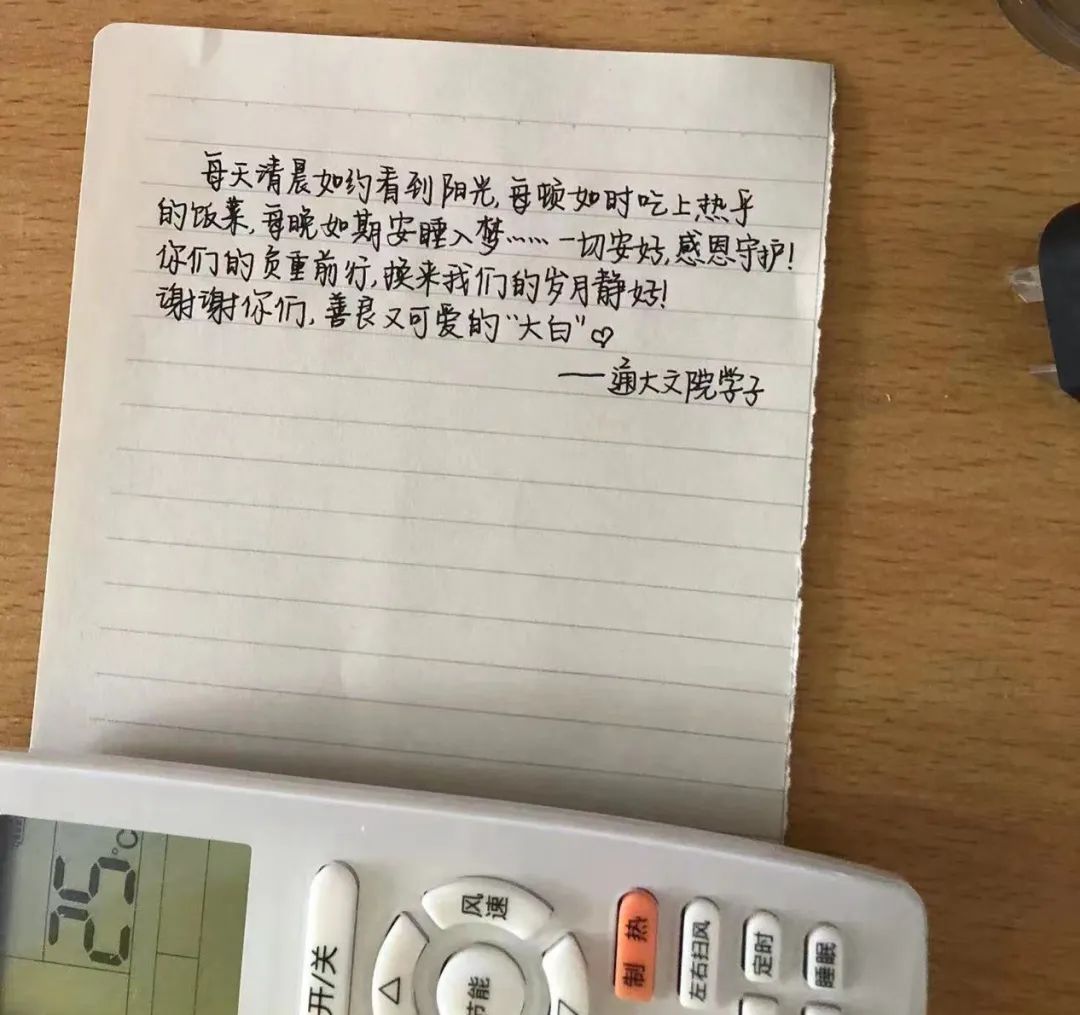 每天清晨如约看到阳光,每顿如时吃上热乎
的饭菜,每晚如期安睡入梦……一切安好,感恩守护!
你们的负重前行,换来我们的岁月静好!
谢谢你们,善良又可爱的“大白”♡
——通大文院学子
25°C
开/关
风速
节能
制热
左右扫风
定时
睡眠